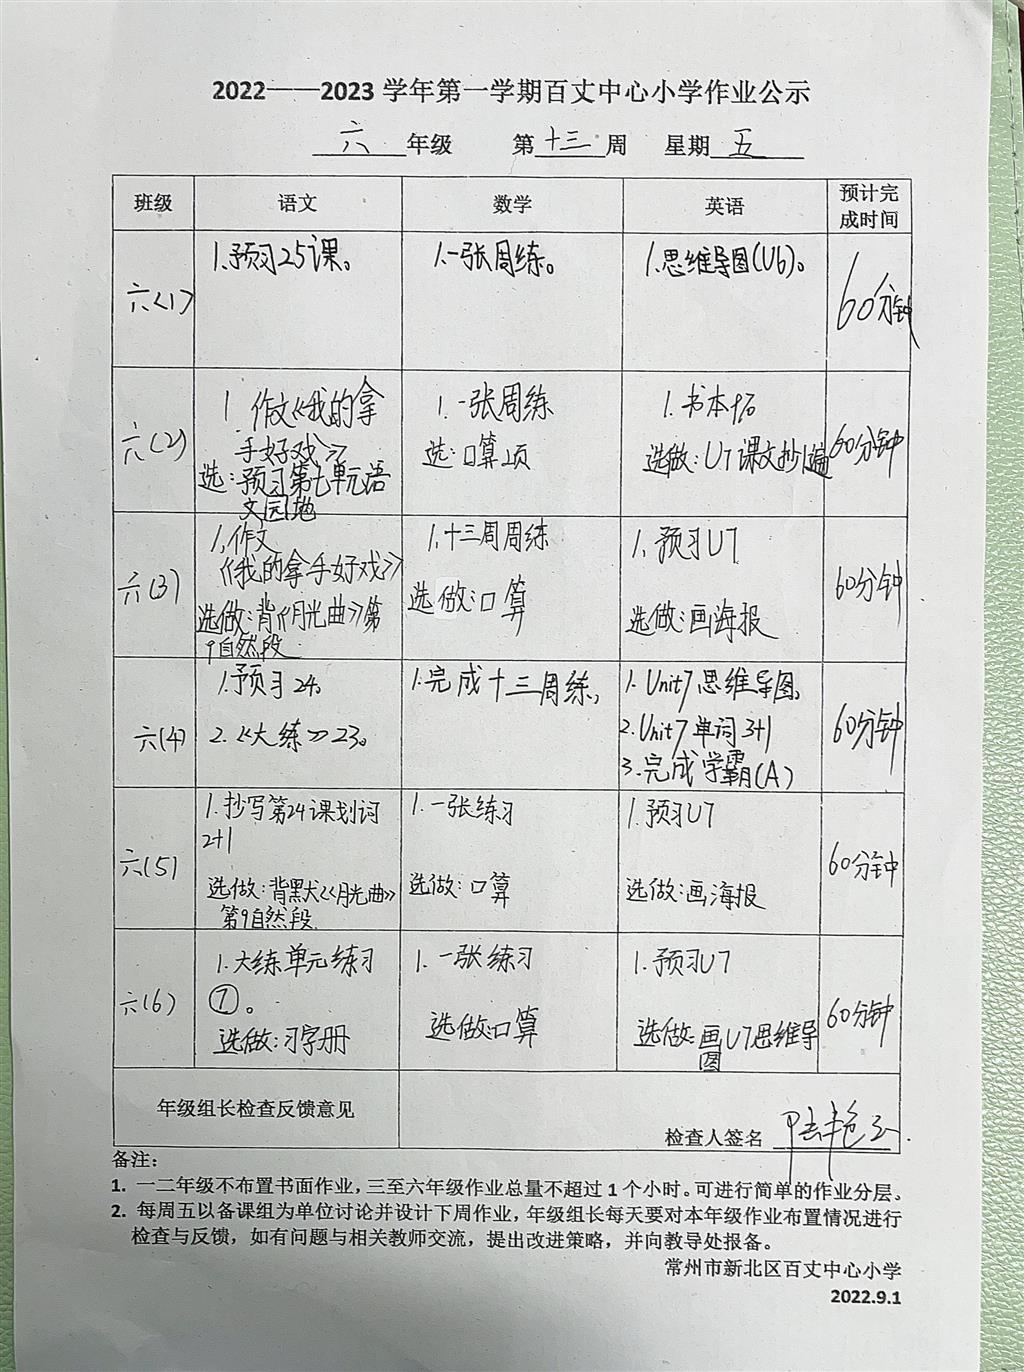 2022——2023 学年第一学期百丈中心小学作业公示
六 年级 第 十三 周 星期 五
班级 语文 数学 英语 预计完
成时间
六(1) 1.预习25课。 1.一张周练。 1.思维导图(U6)。 60分钟
六(2) 1 作文《我的拿
手好戏》
选:预习第七单元语
文园地
1.一张周练
选:口算2页
1.书本96
选做:U7课文抄1遍
60分钟
六(3) 1.作文
《我的拿手好戏》
选做:背《月光曲》第
9自然段
1.十三周周练
选做:口算
1. 预习U7
选做:画海报
60分钟
六(4) 1.预习24。
2.《大练》23。
1.完成十三周练。
1. Unit7思维导图。
2.Unit7单词3+1
3.完成学霸(A)
60分钟
六(5) 1.抄写第24课划词
2+1
选做:背默《月光曲》
第9自然段.
1.一张练习
选做:口算
1.预习U7
选做:画海报
60分钟
六(6) 1.大练单元练习
⑦。
选做:习字册
1.一张练习
选做:口算
1.预习U7
选做:画U7思维导
图
60分钟
年级组长检查反馈意见
检查人签名
备注:
1. 一二年级不布置书面作业,三至六年级作业总量不超过1个小时。可进行简单的作业分层。
2. 每周五以备课组为单位讨论并设计下周作业,年级组长每天要对本年级作业布置情况进行
检查与反馈,如有问题与相关教师交流,提出改进策略,并向教导处报备。
常州市新北区百丈中心小学
2022.9.1